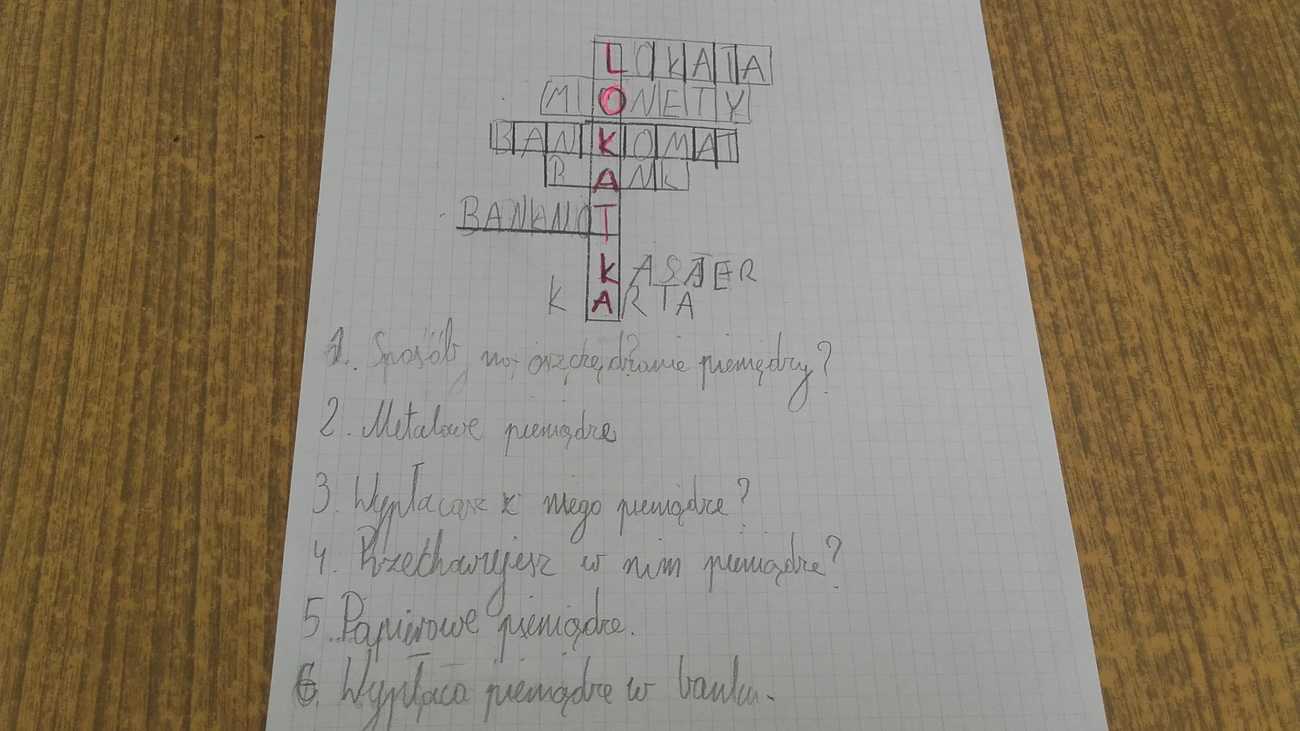 LOKATA
MONETY
BANKOMAT
BANK
BANKNOT
KASJER
KARTA
1. Sposób na oszczędzanie pieniędzy?
2. Metalowe pieniądze
3. Wypłacasz z niego pieniądze?
4. Przechowujesz w nim pieniądze?
5. Papierowe pieniądze.
6. Wypłaca pieniądze w banku.